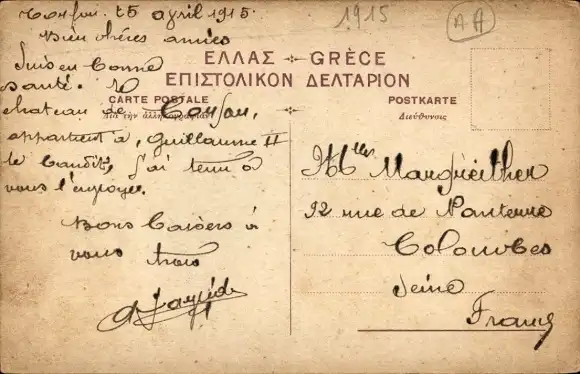 Corfou. 25 avril 1915.
1915
AA
Bien chères amies
Suis en bonne
santé. le
chateau de Corfou,
appartient à, Guillaume II
le bandit, j'ai tenu à
vous l'envoyer.
Bons baisers à
vous trois
ΕΛΛΑΣ GRÈCE
ΕΠΙΣΤΟΛΙΚΟΝ ΔΕΛΤΑΡΙΟΝ
CARTE POSTALE
Διὰ τὴν ἀλληλογραφίαν
POSTKARTE
Διεύθυνσις
Melles Margreither
92 rue de Nanterre
Colombes
Seine
France